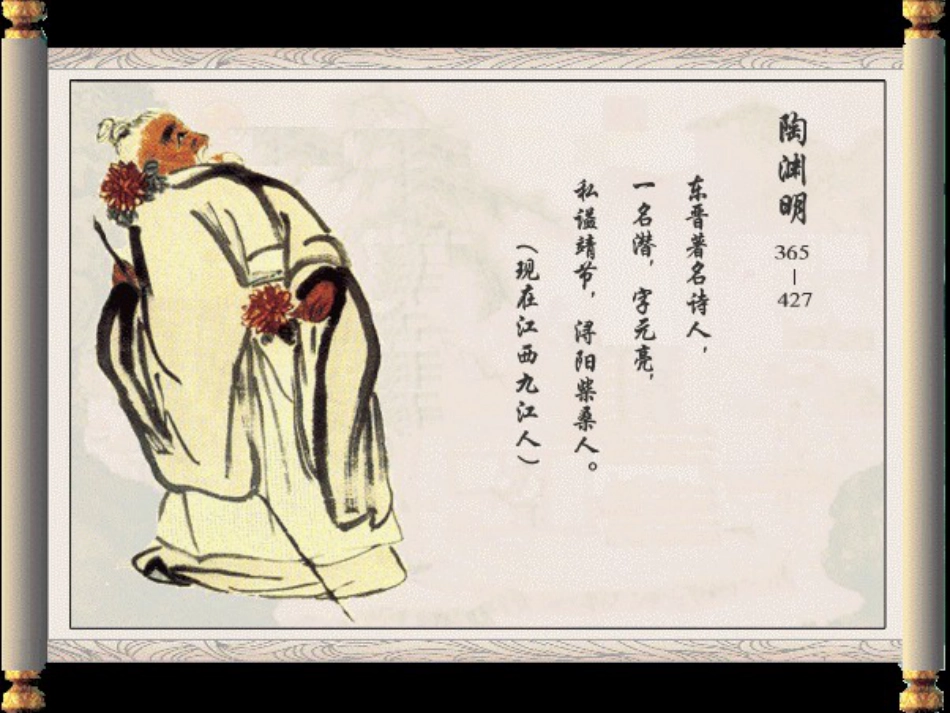 陶渊明
365
|
427
东晋著名诗人，
一名潜，字元亮，
私谥靖节，浔阳柴桑人。
（现在江西九江人）